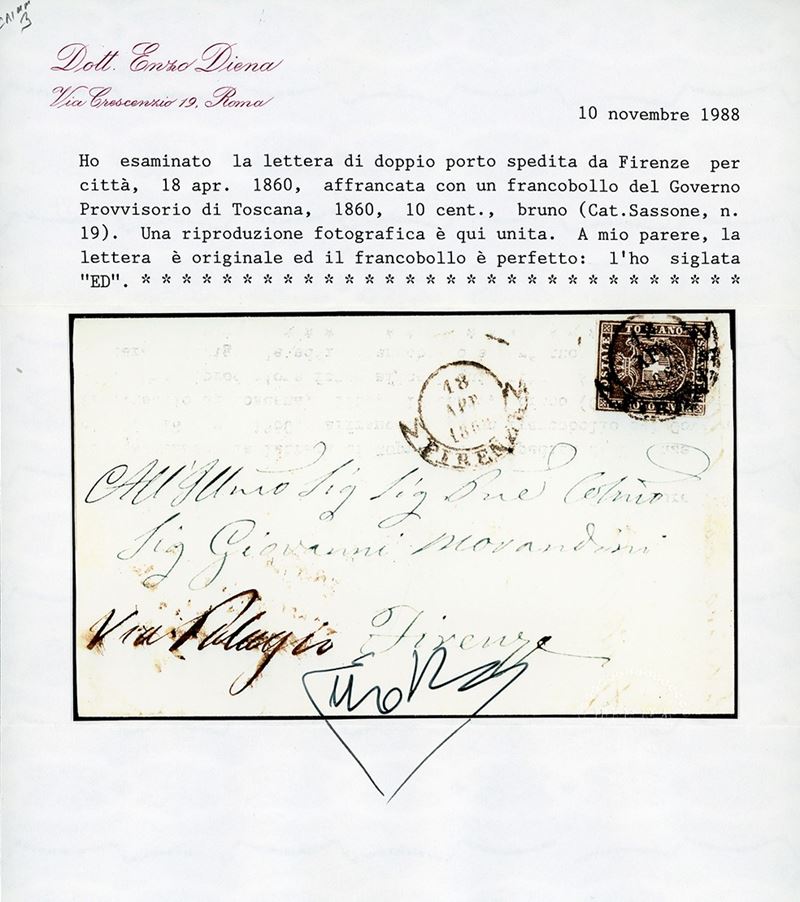 3
Dott. Enzo Diena
Via Crescenzio 19, Roma
10 novembre 1988
Ho esaminato la lettera di doppio porto spedita da Firenze per
città, 18 apr. 1860, affrancata con un francobollo del Governo
Provvisorio di Toscana, 1860, 10 cent., bruno (Cat.Sassone, n.
19). Una riproduzione fotografica è qui unita. A mio parere, la
lettera è originale ed il francobollo è perfetto: l'ho siglata
"ED". * * * * * * * * * * * * * * * * * * * * * * * * * * * * * *
TOSCANO
18
APR
1860
FIRENZE
All'Illmo Sig Sig Pne Colmo
Sig Giovanni Morandini
Via Palagio Firenze